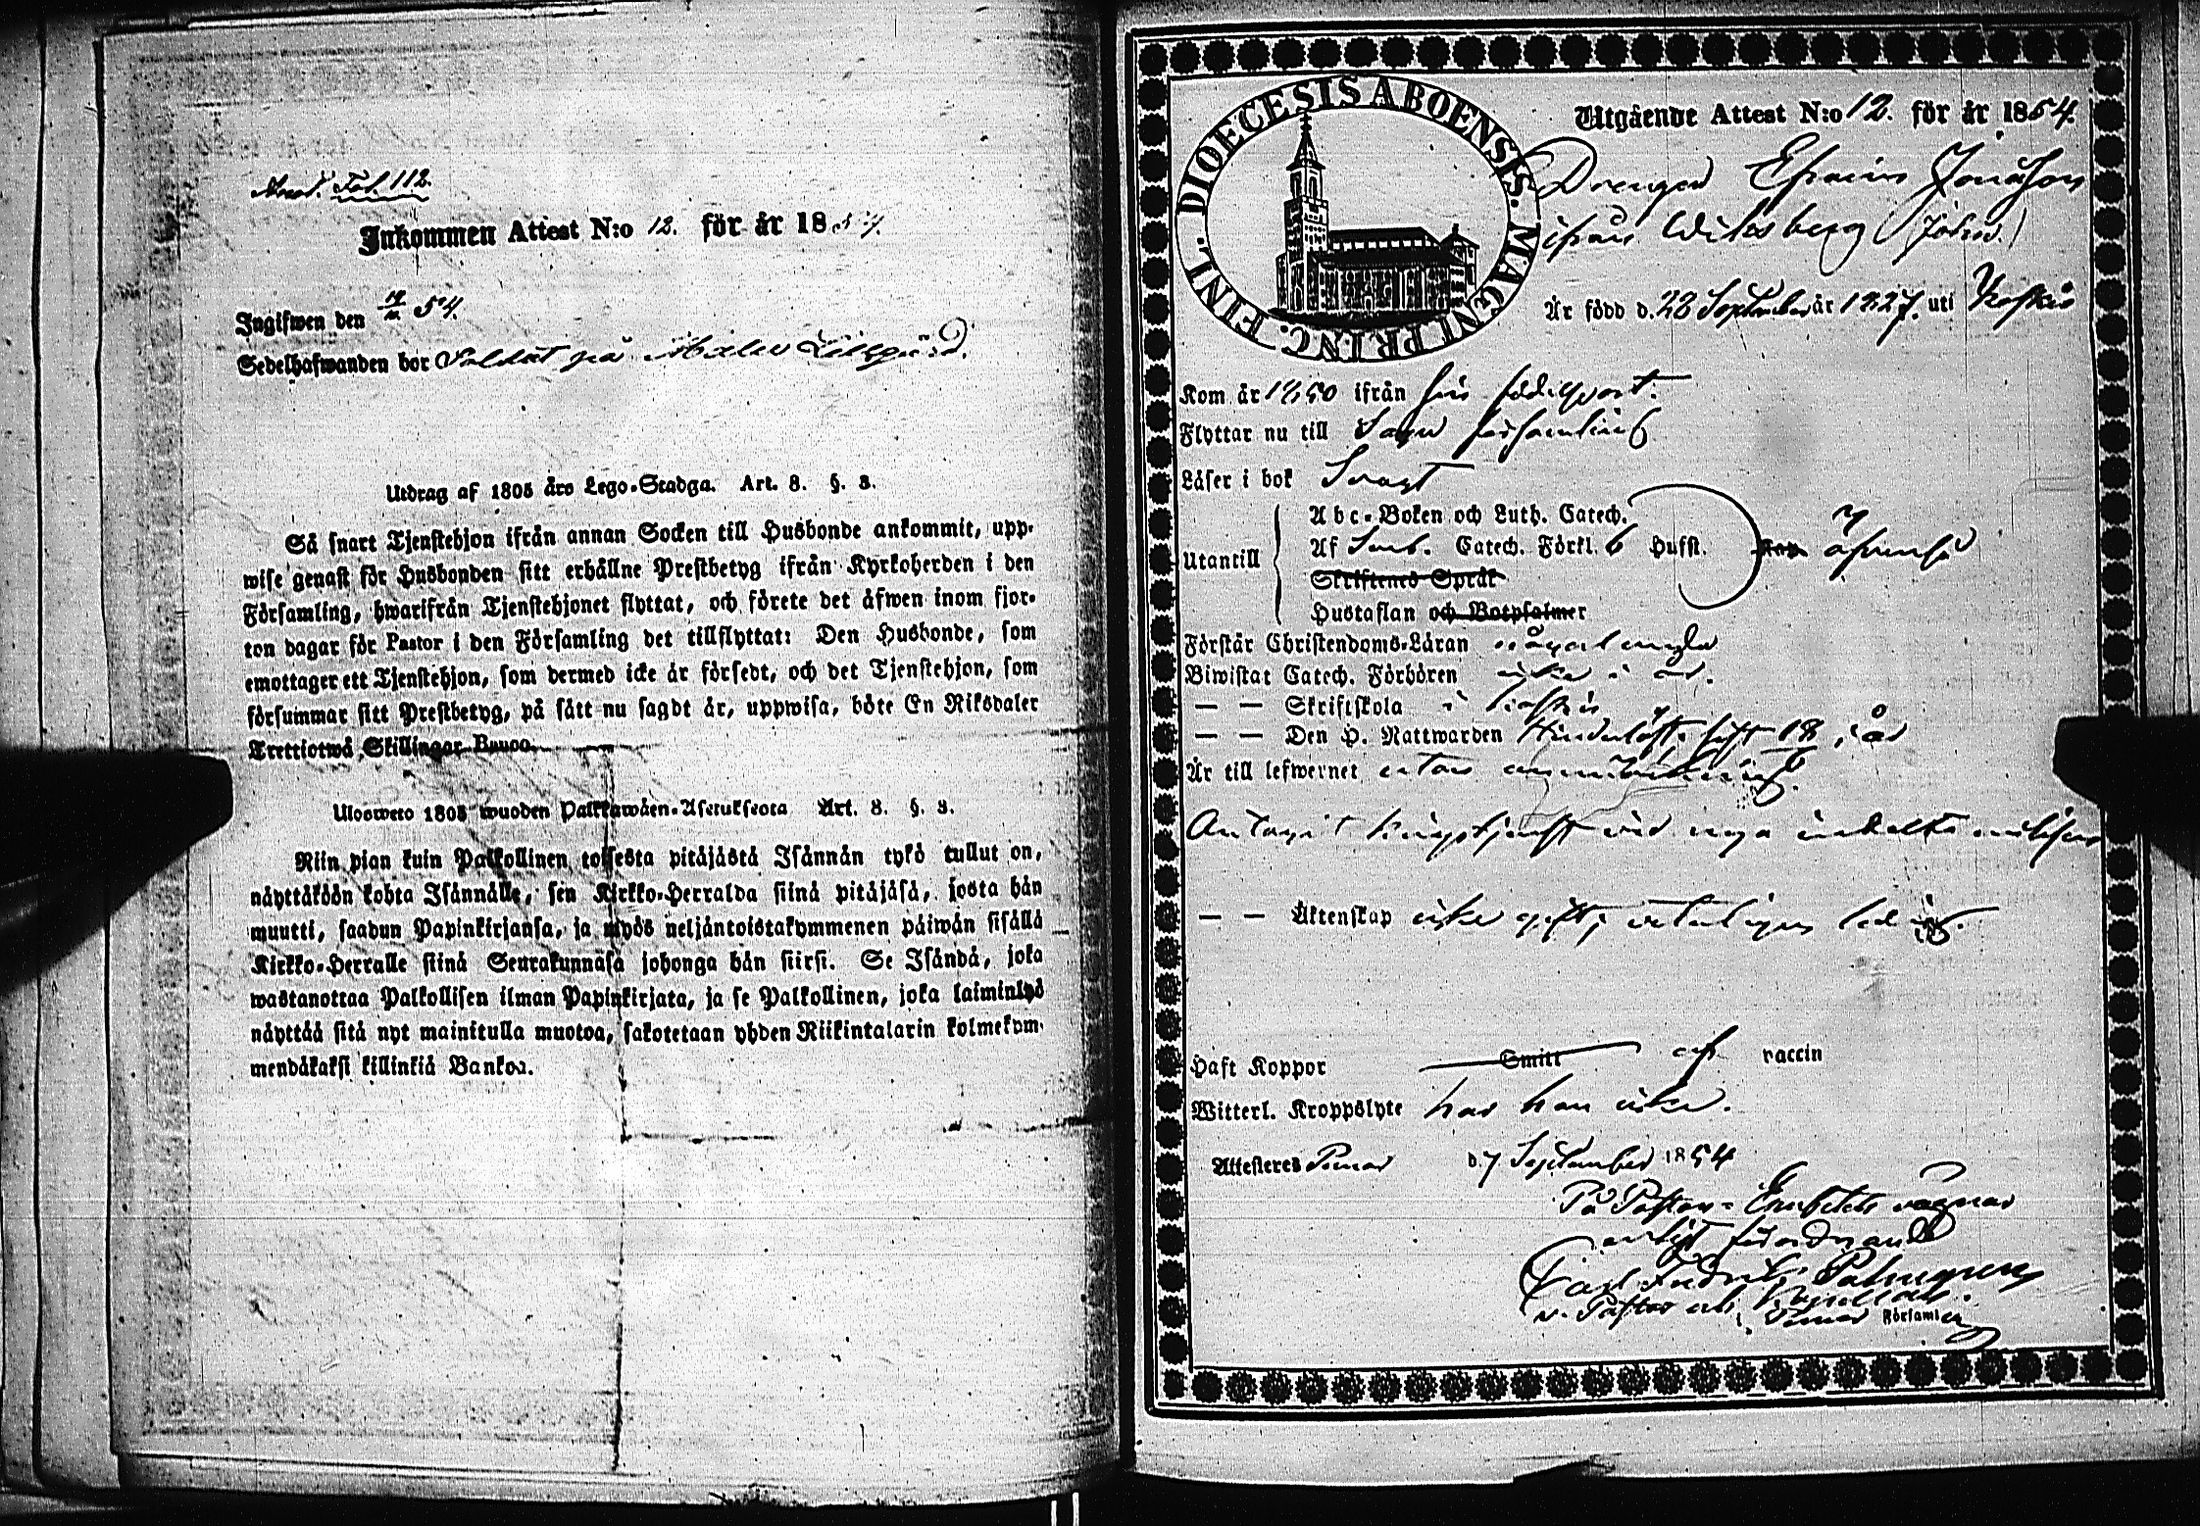 Fol. 112.
Inkommen Attest N:o 12. för år 1854.
Ingifwen den 54.
Sedelhafwanden bor Soldat på Lillgård.
Utdrag af 1805 års Lego-Stadga. Art. 8. §. 3.
Så snart Tjenstehjon ifrån annan Socken till Husbonde ankommit, upp-
wise genast för Husbonden sitt erhållne Prestbetyg ifrån Kyrkoherden i den
Församling, hwarifrån Tjenstehjonet flyttat, och förete det äfwen inom fjor-
ton dagar för Pastor i den Församling det tillflyttat: Den Husbonde, som
emottager ett Tjenstehjon, som dermed icke är försedt, och det Tjenstehjon, som
försummar sitt Prestbetyg, på sätt nu sagdt är, uppwisa, böte En Riksdaler
Trettiotwå Skillingar Banco.
Ulosweto 1805 wuoden Palkkawäen-Asetuksesta Art. 8. §. 3.
Niin pian kuin Palkollinen toisesta pitäjästä Isännän tykö tullut on,
näyttäköön kohta Isännälle, sen Kirkko-Herralda siinä pitäjäsä, josta hän
muutti, saadun Papinkirjansa, ja myös neljäntoistakymmenen päiwän sisällä
Kirkko-Herralle siinä Seurakunnasa johonga hän siirsi. Se Isändä, joka
wastanottaa Palkollisen ilman Papinkirjata, ja se Palkollinen, joka laiminlyö
näyttää sitä nyt mainitulla muotoa, sakotetaan yhden Riikintalarin kolmekym-
mendäkaksi killinkiä Bankoa.
DIOECESIS ABOENSIS. MAGNI PRINC. FINL.
Utgående Attest N:o 12. för år 1854.
Drengen Efraim Jonasson
ifrån Wiksberg
Är född d. 28 September år 1827. uti Koskis
Kom år 1850 ifrån sin födelseort.
Flyttar nu till Sagu församling
Läser i bok Svagt
Abc-Boken och Luth. Catech.
Utantill
Af Sveb. Catech. Förkl. 6 Hufst.
Skriftenes Språk
Hustaflan och Botpsalmer
Förstår Christendoms-Läran något
Biwistat Catech. Förhören icke i år.
— — Skriftskola i Koskis
— — Den H. Nattwarden sist 18 i år
Är till lefwernet utan anmärkning.
Antagit krigstjenst vid nya indelta militsen
— — Äktenskap icke gift, veterligen ledig.
Haft Koppor Smitt af vaccin
Witterl. Kroppslyte har han icke.
Attesteres Pemar d. 7 September 1854
På Pastors-Embetets vägnar
enligt förordnande
Carl Fredrik Palmgren
v. Pastor och Kapellan
i Pemar Församling